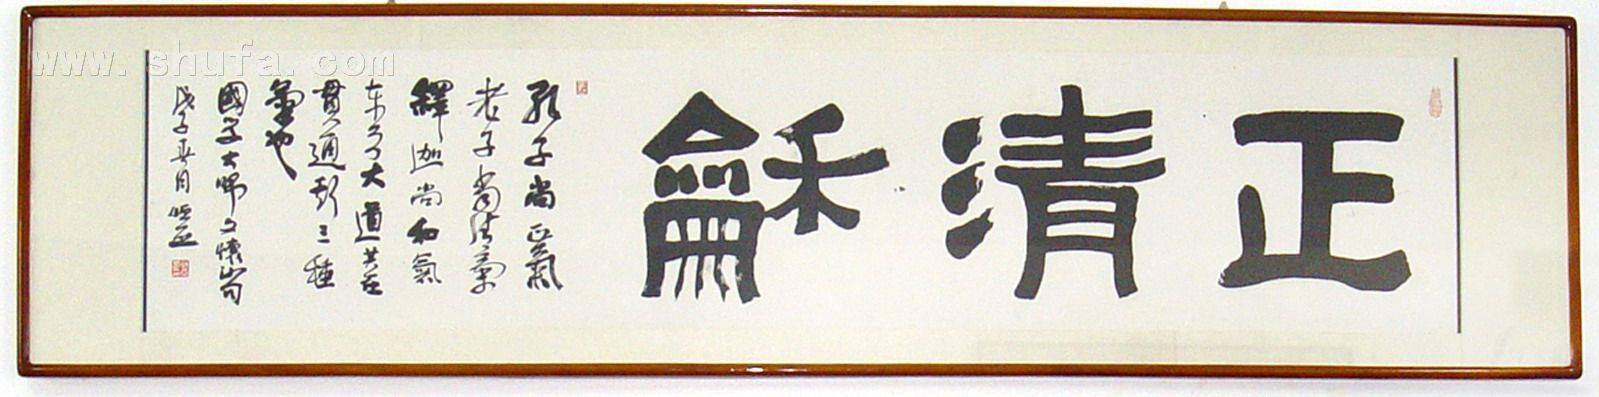 正清龢
孔子尚正氣
老子尚清氣
釋迦尚和氣
东方大道其在
貫通此三種
氣也
國学大師文懷沙句
戊子春月
www.shufa.com